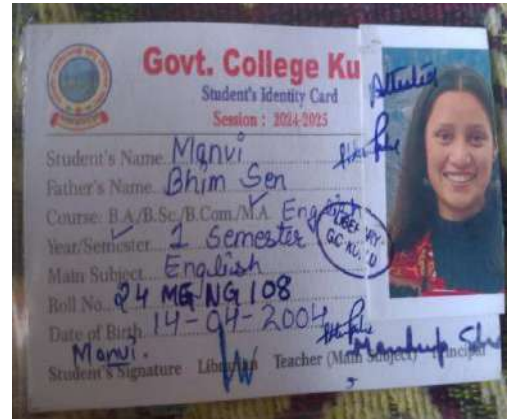 Govt. College Ku
Student's Identity Card
Session : 2024-2025
Attested
Student's Name Manvi
Father's Name. Bhim Sen
Course: B.A./B.Sc./B.Com./M.A. English
Year/Semester 1 Semester
LIBRARY
GC KU
Main Subject English
Roll No. 24 MG NG 108
Date of Birth 14-04-2004
Manvi.
Student's Signature Librarian Teacher (Main Subject) Principal